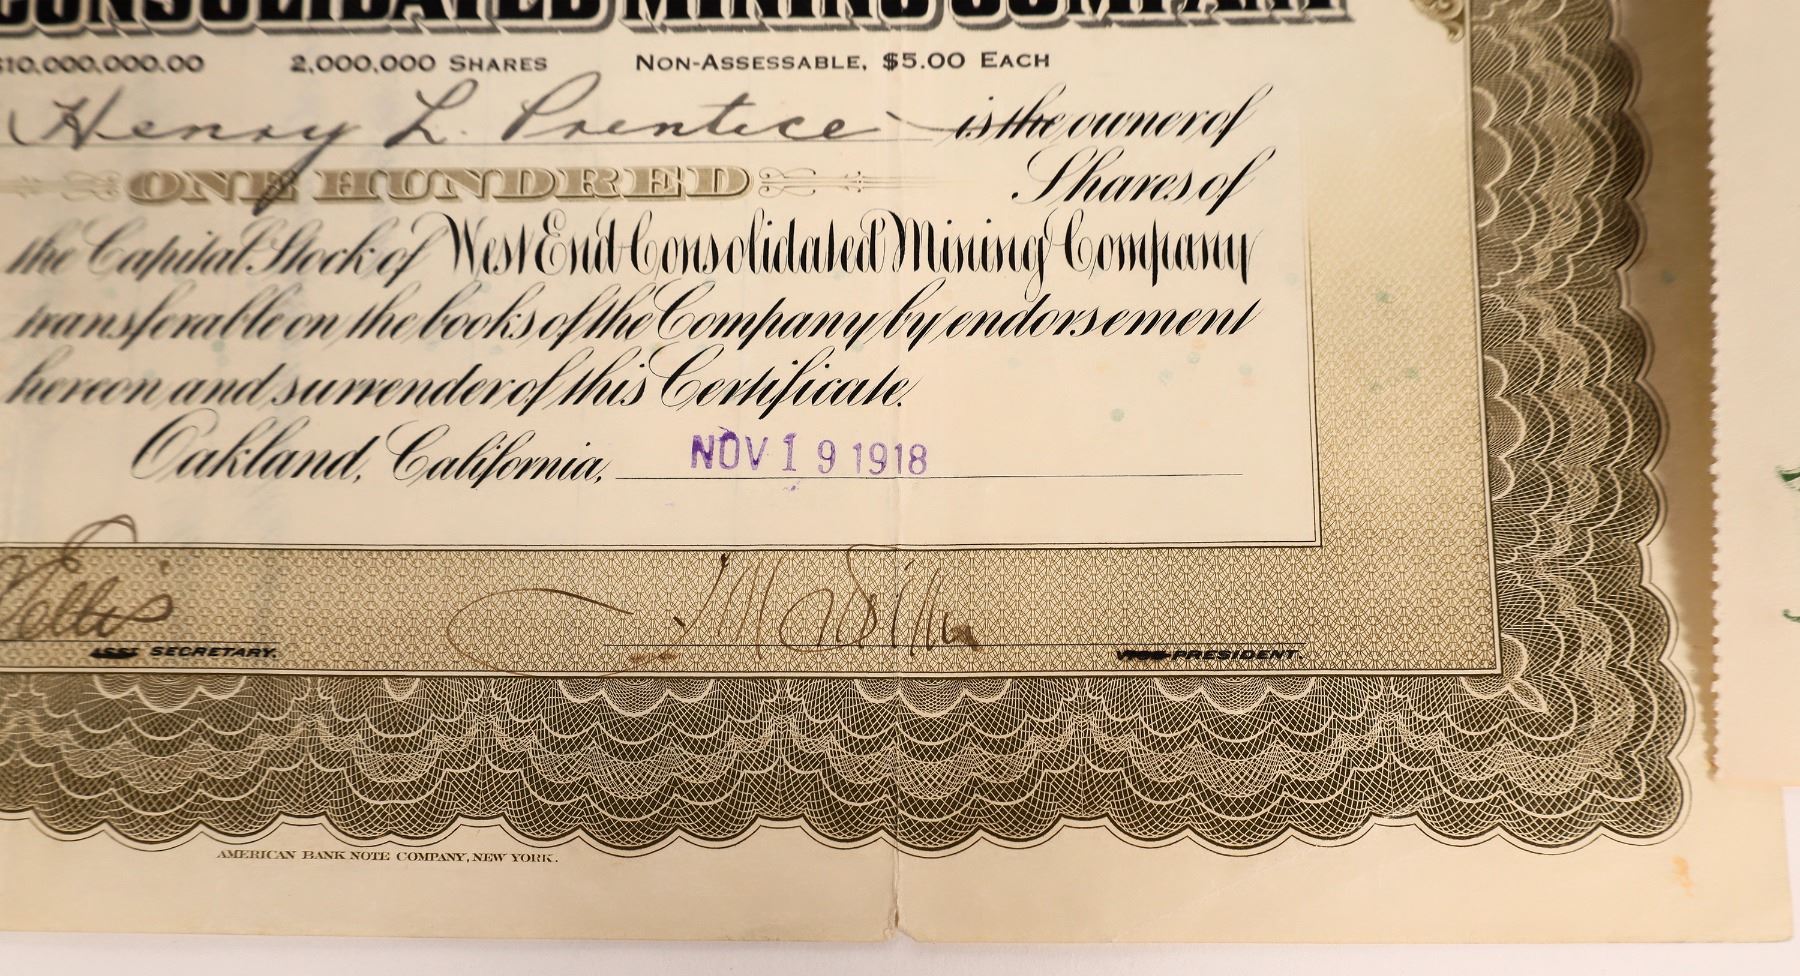 CONSOLIDATED MINING COMPANY
$10,000,000.00 2,000,000 SHARES NON-ASSESSABLE, $5.00 EACH
Henry L. Prentice is the owner of
ONE HUNDRED Shares of
the Capital Stock of West End Consolidated Mining Company
transferable on the books of the Company by endorsement
hereon and surrender of this Certificate.
Oakland, California, NOV 19 1918
ASST SECRETARY. VICE-PRESIDENT.
AMERICAN BANK NOTE COMPANY, NEW YORK.